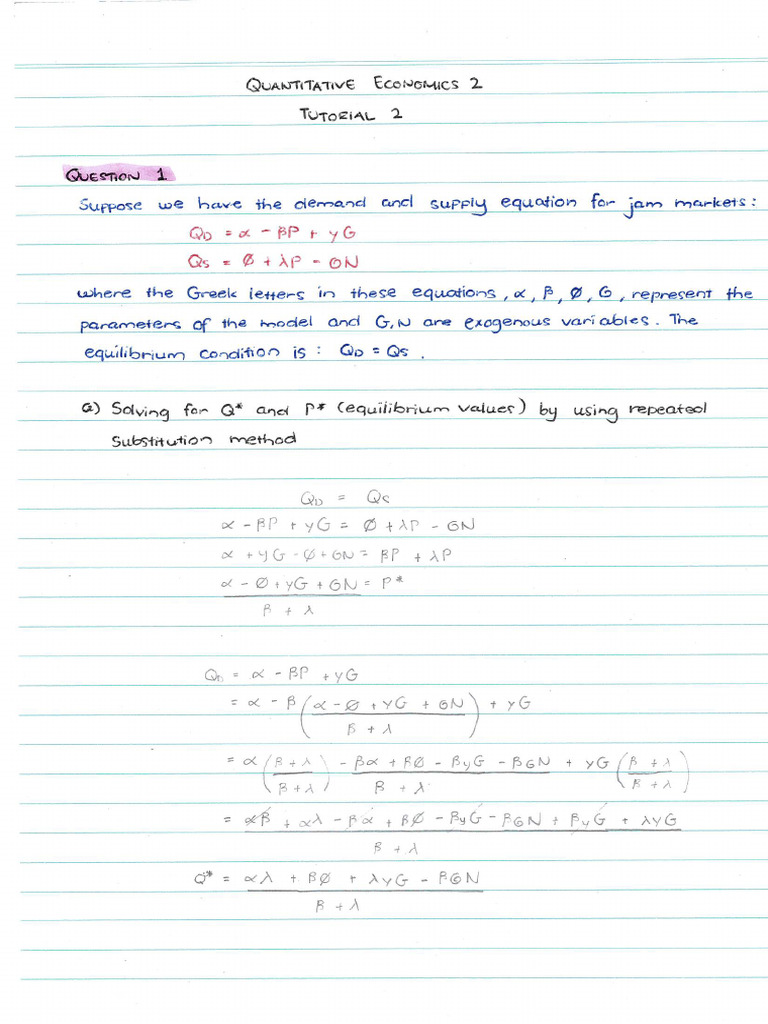 QUANTITATIVE ECONOMICS 2
TUTORIAL 2
QUESTION 1
Suppose we have the demand and supply equation for jam markets:
QD = α - βP + yG
Qs = Ø + λP - ΘN
where the Greek letters in these equations, α, β, Ø, Θ, represent the
parameters of the model and G,N are exogenous variables. The
equilibrium condition is: QD = Qs.
a) Solving for Q* and P* (equilibrium values) by using repeated
substitution method
QD = Qs
α - βP + yG = Ø + λP - ΘN
α + yG - Ø + ΘN = βP + λP
α - Ø + yG + ΘN = P*
β + λ
QD = α - βP + yG
= α - β (α - Ø + yG + ΘN) + yG
β + λ
= α (β + λ) - βα + βØ - βyG - βΘN + yG (β + λ)
(β + λ) β + λ (β + λ)
= αβ + αλ - βα + βØ - βyG - βΘN + βyG + λyG
β + λ
Q* = αλ + βØ + λyG - βΘN
β + λ